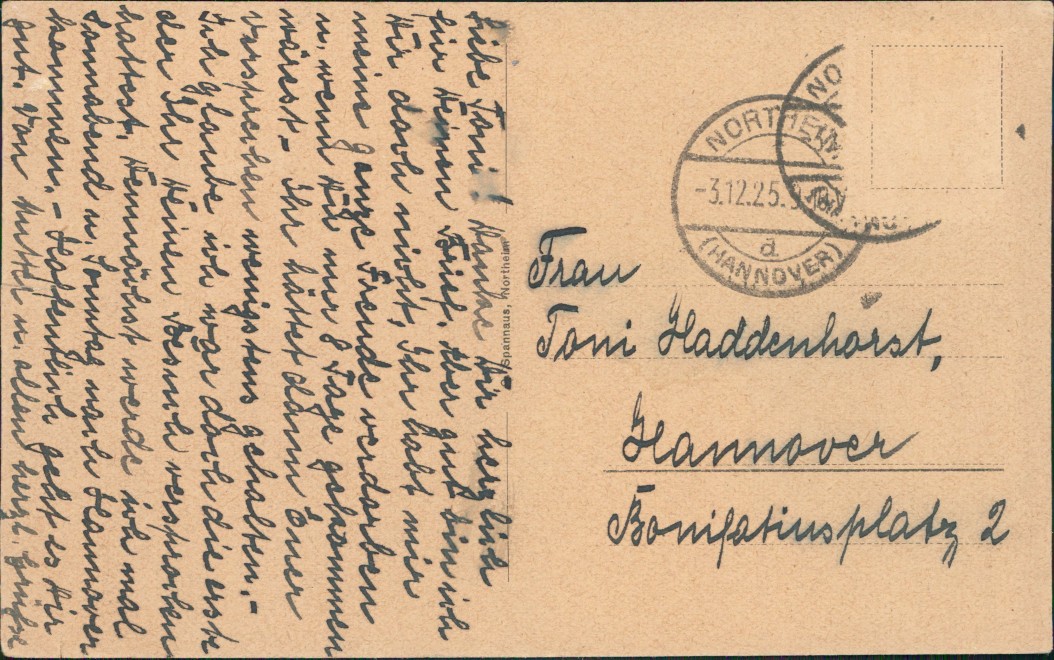 Liebe Toni! Danke Dir herzlich
für Deinen Brief. Aber gut bin ich
Dir doch nicht, Ihr habt mir
meine ganze Freude verdorben
u. wenn Du nur 8 Tage gekommen
wärest - Ihr hättet dann Euer
Versprechen wenigstens gehalten.-
Ich glaube ich war doch die erste
der Ihr Deinen Besuch versprochen
hattest. Demnächst werde ich mal
Sonnabend u. Sonntag nach Hannover
kommen.- Hoffentlich geht es Dir
gut. Von Mutter u. allen herzl. Grüße
Spannaus, Northeim
NORTHEIM
-3.12.25.
a
(HANNOVER)
NO
Frau
Toni Haddenhorst,
Hannover
Bonifatiusplatz 2